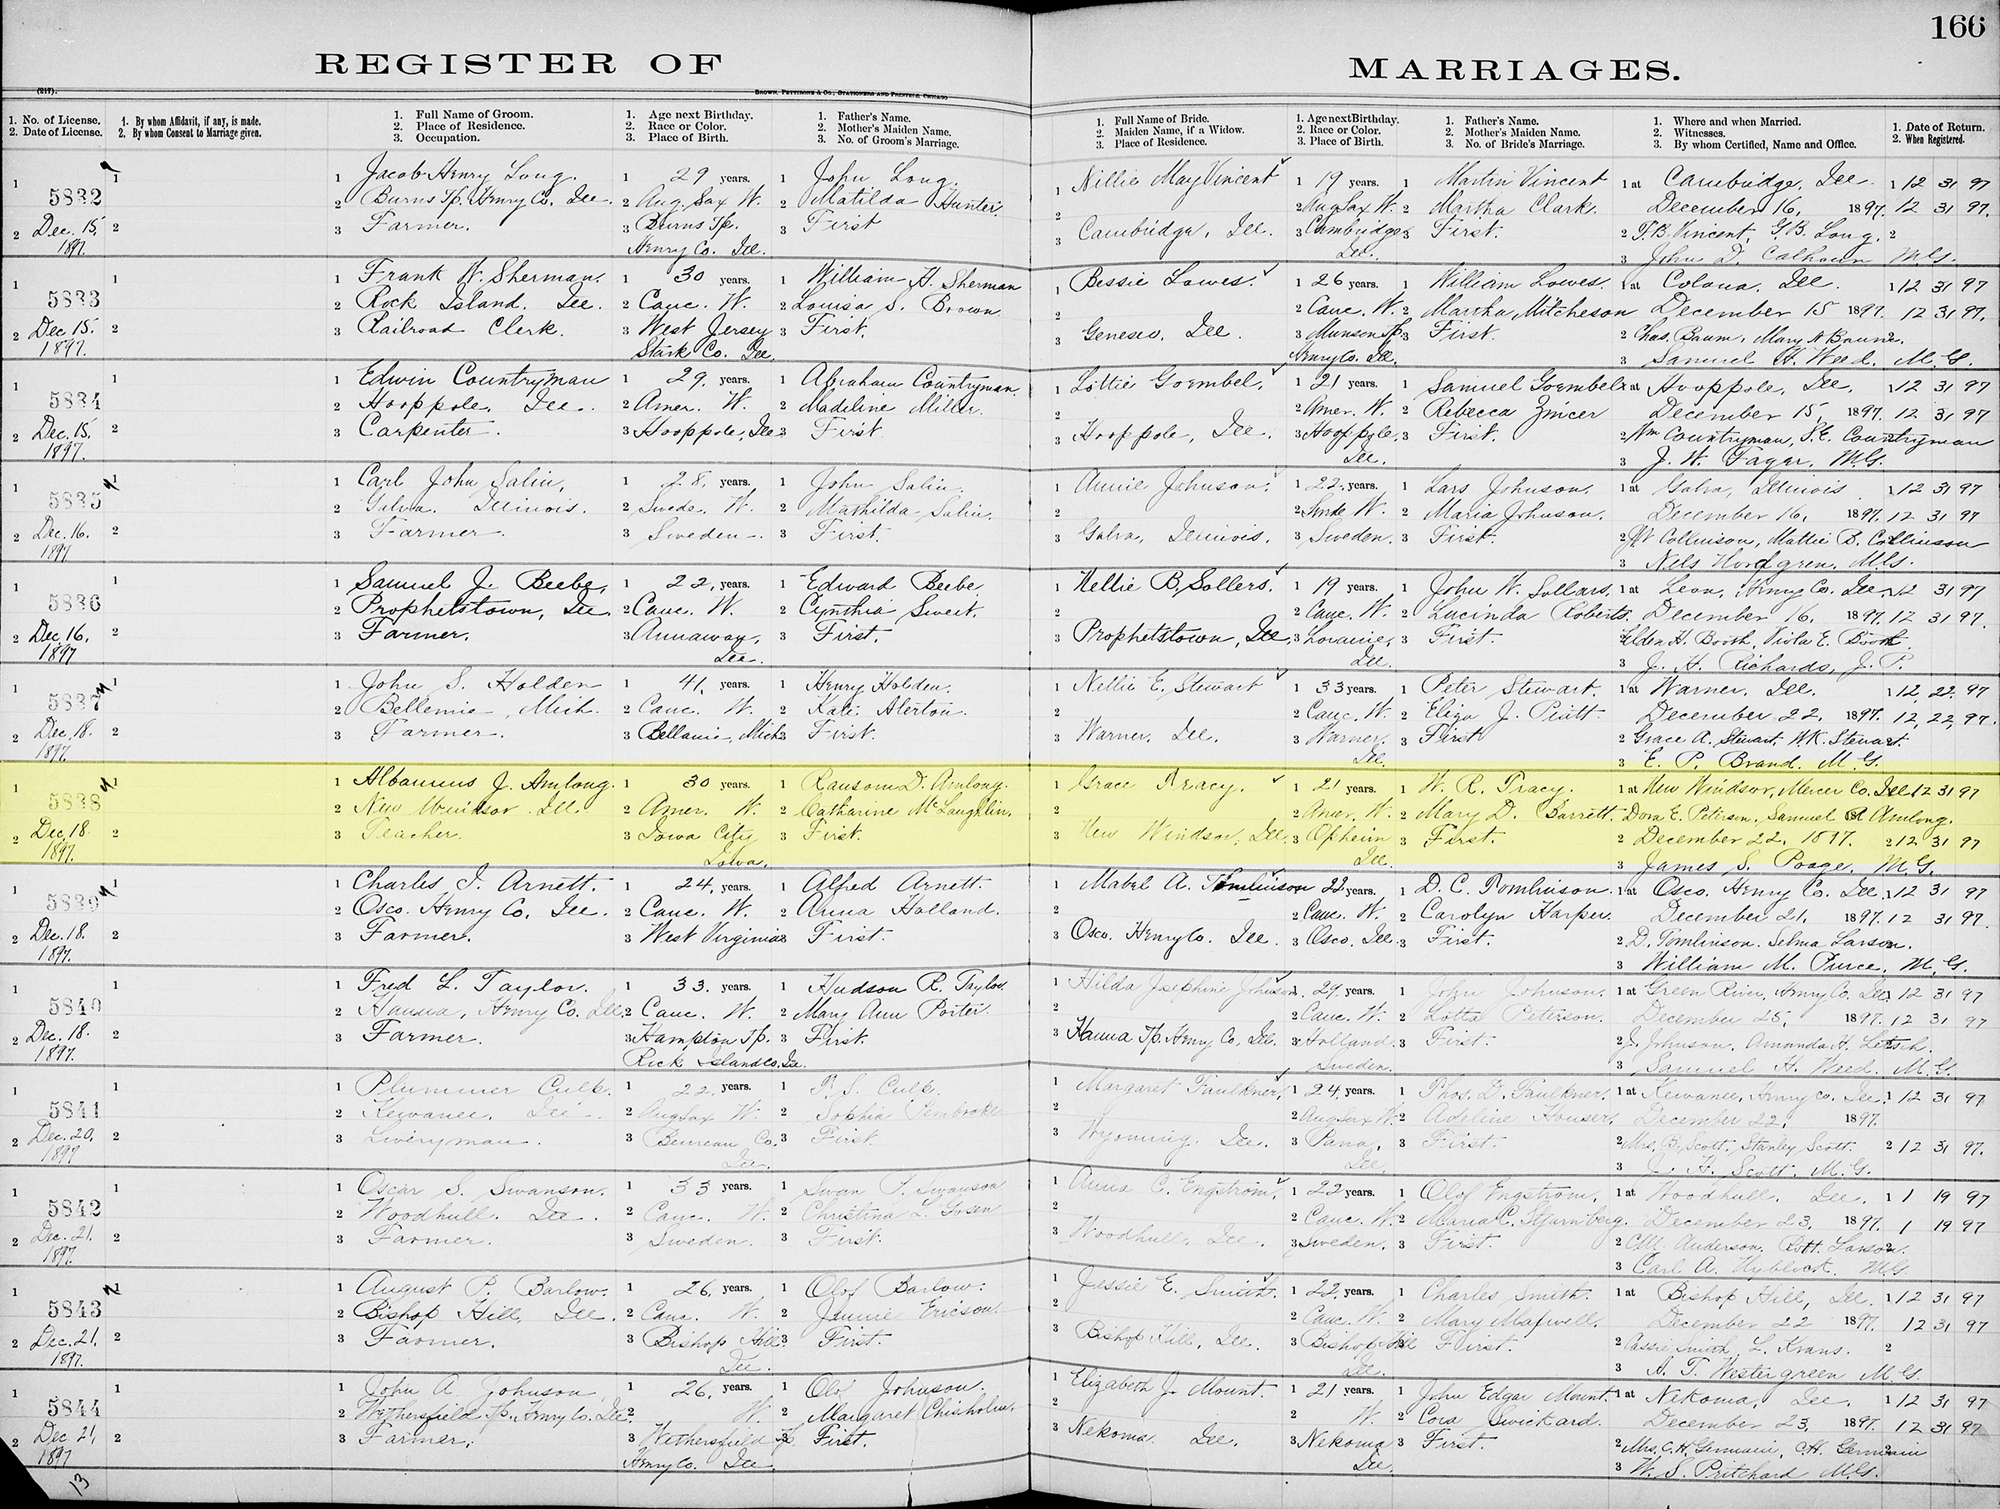 166
REGISTER OF MARRIAGES.
(217).
BROWN, PETTIBONE & CO., STATIONERS AND PRINTERS, CHICAGO
1. No. of License.
2. Date of License.
1. By whom Affidavit, if any, is made.
2. By whom Consent to Marriage given.
1. Full Name of Groom.
2. Place of Residence.
3. Occupation.
1. Age next Birthday.
2. Race or Color.
3. Place of Birth.
1. Father's Name.
2. Mother's Maiden Name.
3. No. of Groom's Marriage.
1. Full Name of Bride.
2. Maiden Name, if a Widow.
3. Place of Residence.
1. Age next Birthday.
2. Race or Color.
3. Place of Birth.
1. Father's Name.
2. Mother's Maiden Name.
3. No. of Bride's Marriage.
1. Where and when Married.
2. Witnesses.
3. By whom Certified, Name and Office.
1. Date of Return.
2. When Registered.
1 5832 1 1 Jacob Henry Long. 1 29 years. 1 John Long. 1 Nillie May Vincent 1 19 years. 1 Martin Vincent 1 at Cambridge, Ill. 1 12 31 97
2 Burns Tp. Henry Co. Ill. 2 Ang. Sax W. 2 Matilda Hunter. 2 2 Ang Sax W. 2 Martha Clark. December 16, 1897. 12 31 97.
2 Dec. 15, 1897. 2 3 Farmer. 3 Burns Tp. Henry Co. Ill. 3 First 3 Cambridge, Ill. 3 Cambridge Ill. 3 First. 2 F. B. Vincent, G. B. Long. 2
3 John D. Calhoun M.G.
1 5833 1 1 Frank W. Sherman. 1 30 years. 1 William H. Sherman 1 Bessie Lowes. 1 26 years. 1 William Lowes. 1 at Colona, Ill. 1 12 31 97
2 Rock Island, Ill. 2 Cauc. W. 2 Louisa S. Brown 2 2 Cauc. W. 2 Martha Mitcheson December 15 1897. 12 31 97.
2 Dec. 15. 1897. 2 3 Railroad Clerk. 3 West Jersey Stark Co. Ill. 3 First. 3 Geneseo, Ill 3 Munson Tp. Henry Co. Ill. 3 First 2 Chas. Baum, Mary A Baum.
3 Samuel H. Weed, M.G.
1 5834 1 1 Edwin Countryman 1 29. years. 1 Abraham Countryman. 1 Lottie Goembel. 1 21 years. 1 Samuel Goembel 1 at Hooppole, Ill. 1 12 31 97
2 Hooppole, Ill. 2 Amer. W. 2 Madeline Miller. 2 2 Amer. W. 2 Rebecca December 15, 1897. 12 31 97
2 Dec. 15, 1897. 2 3 Carpenter. 3 Hooppole, Ill 3 First. 3 Hooppole, Ill. 3 Hooppole, Ill. 3 First. 2 Wm Countryman, S.E. Countryman
3 J. W. Fagar, M.G.
1 5835 1 1 Carl John Salin, 1 28, years. 1 John Salin. 1 Annie Johnson. 1 22 years. 1 Lars Johnson. 1 at Galva, Illinois 1 12 31 97
2 Galva. Illinois. 2 Swede. W. 2 Mathilda Salin. 2 2 Swede W. 2 Maria Johnson. December 16, 1897. 12 31 97
2 Dec. 16. 1897 2 3 Farmer 3 Sweden. 3 First. 3 Galva, Illinois. 3 Sweden. 3 First. 2 Collinson, Mattie B. Collinson
3 Nels Nordgren, M.G.
1 5836 1 1 Samuel J. Beebe, 1 22, years. 1 Edward Beebe. 1 Nellie B. Sollers. 1 19 years. 1 John W. Sollars. 1 at Leon, Henry Co. Ill 1 12 31 97
2 Prophetstown, Ill 2 Cauc. W. 2 Cynthia Sweet. 2 2 Cauc. W. 2 Lucinda Roberts. December 16. 1897. 12 31 97.
2 Dec. 16, 1897 2 3 Farmer. 3 Annawan, Ill. 3 First. 3 Prophetstown, Ill. 3 Loraine, Ill. 3 First. Elden H. Booth, Viola E. Booth
3 J. H. Richards, J. P.
1 5837 1 1 John S. Holden 1 41, years. 1 Henry Holden. 1 Nellie E. Stewart 1 33 years. 1 Peter Stewart. 1 at Warner, Ill. 1 12, 22, 97
2 Mich. 2 Cauc. W. 2 Kate Alerton. 2 2 Cauc. W. 2 Eliza J. Piatt December 22, 1897. 12, 22, 97.
2 Dec. 18. 1897. 2 3 Farmer. 3 Mich 3 First. 3 Warner, Ill. 3 Warner, Ill. 3 First 2 Grace A. Stewart, W.K. Stewart.
3 E. P. Brand. M.G.
1 5838 1 1 Albannus J. Amlong. 1 30 years. 1 Ransom D. Amlong. 1 Grace Tracy. 1 21 years. 1 W. R. Tracy. 1 at New Windsor, Mercer Co. Ill 1 12 31 97
2 New Windsor Ill 2 Amer. W. 2 Catharine McLaughlin. 2 2 Amer. W. 2 Mary D. Barrett. Dora E. Peterson, Samuel A Amlong.
2 Dec. 18. 1897. 2 3 Teacher. 3 Iowa City Iowa. 3 First. 3 New Windsor, Ill. 3 Opheim Ill. 3 First. 2 December 22, 1897. 2 12 31 97
3 James S. Poage, M.G.
1 5839 1 1 Charles I. Arnett. 1 24, years. 1 Alfred Arnett. 1 Mabel A. Tomlinson 22 years. 1 D. C. Tomlinson. 1 at Osco. Henry Co. Ill 1 12 31 97
2 Osco. Henry Co. Ill. 2 Cauc. W. 2 Anna Holland. 2 2 Cauc. W. 2 Carolyn Harper. December 21, 1897. 12 31 97.
2 Dec. 18. 1897. 2 3 Farmer. 3 West Virginia 3 First. 3 Osco. Henry Co. Ill. 3 Osco. Ill. 3 First. 2 D. Tomlinson. Selma Larson.
3 William M. Pierce, M.G.
1 5840 1 1 Fred L. Taylor. 1 33. years. 1 Hudson R. Taylor. 1 Hilda Josephine Johnson. 29 years. 1 John Johnson. 1 at Green River, Henry Co. Ill 1 12 31 97
2 Hanna, Henry Co. Ill 2 Cauc. W. 2 Mary Ann Porter. 2 2 Cauc. W. 2 Lotta Peterson. December 25, 1897. 12 31 97
2 Dec. 18. 1897. 2 3 Farmer. 3 Hampton Tp. Rock Island Co. Ill. 3 First. 3 Hanna Tp. Henry Co, Ill. 3 Holland Sweden. 3 First. 2 J. Johnson. Amanda H. Letsch.
3 Samuel H. Weed. M.G.
1 5841 1 1 Plummer Culp. 1 22. years. 1 S. Culp. 1 Margaret Faulkner, 1 24, years. 1 Thos. D. Faulkner. 1 at Kewanee, Henry Co. Ill. 1 12 31 97
2 Kewanee. Ill. 2 Ang Sax W. 2 Sophia Pembroke 2 2 Ang Sax W. 2 Adeline Houser. December 22, 1897.
2 Dec. 20, 1897 2 3 Liveryman. 3 Bureau Co. Ill. 3 First. 3 Wyoming, Ill. 3 Pana, Ill. 3 First. 2 Mrs. B. Scott. Stanley Scott. 2 12 31 97.
3 Scott, M.G.
1 5842 1 1 Oscar S. Swanson. 1 33 years. 1 Swan P. Swanson 1 Anna C. Engstrom. 1 22 years. 1 Olof Engstrom. 1 at Woodhull. Ill. 1 1 19 97
2 Woodhull. Ill. 2 Cauc. W. 2 Christina L. 2 2 Cauc. W. 2 Maria C. Stjarnberg. December 23, 1897. 1 19 97
2 Dec. 21. 1897. 2 3 Farmer. 3 Sweden. 3 First. 3 Woodhull, Ill. 3 Sweden. 3 First. 2 C.W. Anderson, Larson.
3 Carl A. Nyblock. M.G.
1 5843 1 1 August P. Barlow. 1 26, years. 1 Olof Barlow. 1 Jessie E. Smith. 1 22, years. 1 Charles Smith. 1 at Bishop Hill, Ill. 1 12 31 97
2 Bishop Hill, Ill. 2 Cauc. W. 2 Jennie Ericson. 2 2 Cauc. W. 2 Mary Maxwell. December 22 1897. 12 31 97
2 Dec. 21, 1897. 2 3 Farmer. 3 Bishop Hill Ill. 3 First. 3 Bishop Hill, Ill. 3 Bishop Hill Ill. 3 First. 2 Cassie Smith L. Krans. 2
3 A. T. Westergreen M.G.
1 5844 1 1 John A. Johnson 1 26, years. 1 Olof Johnson. 1 Elizabeth J. Mount. 1 21 years. 1 John Edgar Mount. 1 at Nekoma, Ill. 1 12 31 97
2 Wethersfield Tp. Henry Co. Ill. 2 W. 2 Margaret Chisholm. 2 2 W. 2 Cora Swickard. December 23, 1897. 12 31 97
2 Dec 21, 1897 2 3 Farmer. 3 Wethersfield Tp. Henry Co. Ill. 3 First. 3 Nekoma. Ill. 3 Nekoma Ill. 3 First. 2 Mrs. C.H. Germain, C.H. Germain
3 W. S. Pritchard M.G.
13